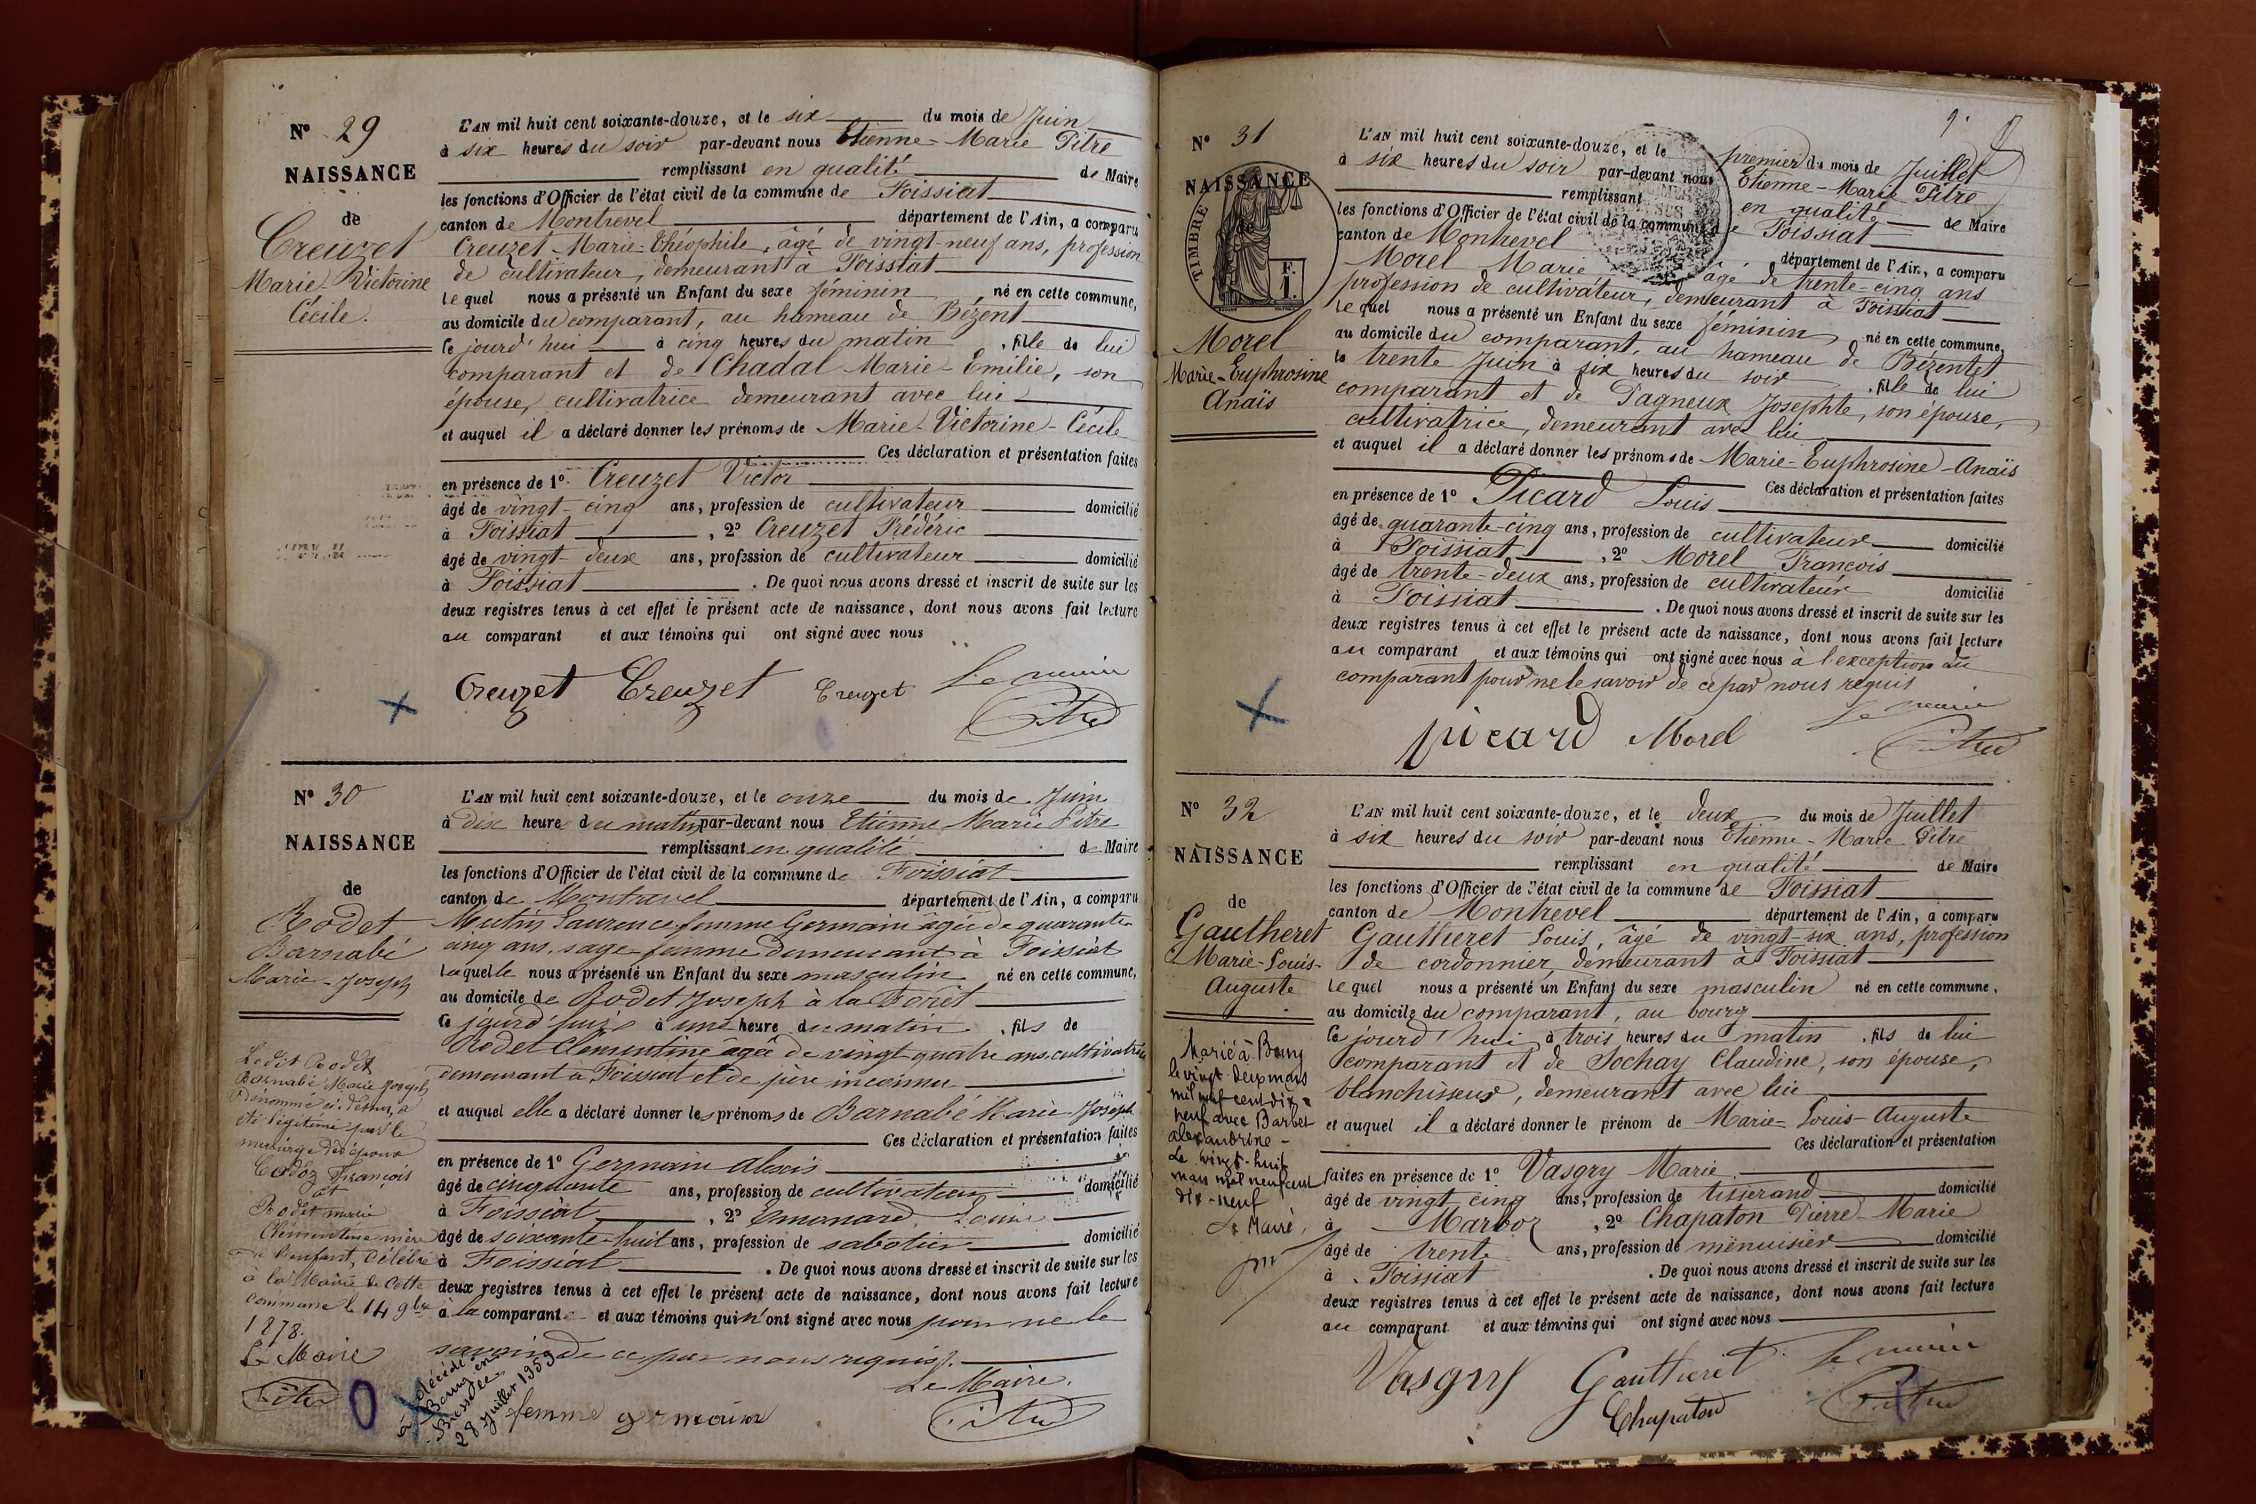 N° 29
NAISSANCE
de
Creuzet
Marie-Victorine
Cécile.
L'AN mil huit cent soixante-douze, et le six du mois de Juin
à six heures du soir par-devant nous Etienne-Marie Pitre
remplissant en qualité de Maire
les fonctions d'Officier de l'état civil de la commune de Foissiat
canton de Montrevel département de l'Ain, a comparu
Creuzet Marie-Théophile, âgé de vingt-neuf ans, profession
de cultivateur, demeurant à Foissiat
lequel nous a présenté un Enfant du sexe féminin, né en cette commune,
au domicile du comparant, au hameau de Bézent
ce jourd'hui à cinq heures du matin, fille de lui
comparant et de Chadal Marie-Emilie, son
épouse, cultivatrice demeurant avec lui
et auquel il a déclaré donner les prénoms de Marie-Victorine-Cécile
Ces déclaration et présentation faites
en présence de 1° Creuzet Victor
âgé de vingt-cinq ans, profession de cultivateur domicilié
à Foissiat, 2° Creuzet Frédéric
âgé de vingt-deux ans, profession de cultivateur domicilié
à Foissiat. De quoi nous avons dressé et inscrit de suite sur les
deux registres tenus à cet effet le présent acte de naissance, dont nous avons fait lecture
au comparant et aux témoins qui ont signé avec nous
Creuzet Creuzet Creuzet Le maire
Pitre
N° 30
NAISSANCE
de
Rodet
Barnabé
Marie-Joseph
L'AN mil huit cent soixante-douze, et le onze du mois de Juin
à dix heures du matin par-devant nous Etienne Marie Pitre
remplissant en qualité de Maire
les fonctions d'Officier de l'état civil de la commune de Foissiat
canton de Montrevel département de l'Ain, a comparu
Mutin Laurence femme Germain âgée de quarante
cinq ans, sage-femme demeurant à Foissiat
laquelle nous a présenté un Enfant du sexe masculin né en cette commune,
au domicile de Rodet Joseph à la Forêt
ce jourd'hui à une heure du matin, fils de
Rodet Clémentine âgée de vingt quatre ans cultivatrice
demeurant à Foissiat et de père inconnu
et auquel elle a déclaré donner les prénoms de Barnabé Marie-Joseph
Ces déclaration et présentation faites
en présence de 1° Germain Alexis
âgé de cinquante ans, profession de cultivateur domicilié
à Foissiat, 2° Emonard Louis
âgé de soixante-huit ans, profession de sabotier domicilié
à Foissiat. De quoi nous avons dressé et inscrit de suite sur les
deux registres tenus à cet effet le présent acte de naissance, dont nous avons fait lecture
à la comparante et aux témoins qui n'ont signé avec nous pour ne le
savoir de ce par nous requis.
Le Maire.
femme germain Pitre
Ledit Rodet
Barnabé Marie Joseph
dénommé ci-dessus, a
été légitimé par le
mariage des époux
Cadoz François
et
Rodet marie
Clémentine mère
de l'enfant, célébré
à la Mairie de cette
commune le 14 9bre
1878.
Le Maire
Pitre
décédé
à Bourg en
Bresse le
28 Juillet 1959
N° 31
NAISSANCE
de
TIMBRE
Morel
Marie-Euphrosine
Anaïs
9.
L'AN mil huit cent soixante-douze, et le premier du mois de Juillet
à six heures du soir par-devant nous Etienne-Marie Pitre
remplissant en qualité de Maire
les fonctions d'Officier de l'état civil de la commune de Foissiat
canton de Montrevel département de l'Ain, a comparu
Morel Marie âgé de trente-cinq ans
profession de cultivateur, demeurant à Foissiat
lequel nous a présenté un Enfant du sexe féminin né en cette commune,
au domicile du comparant, au hameau de Bézentet
le trente Juin à six heures du soir, fille de lui
comparant et de Pagneux Josephte, son épouse,
cultivatrice, demeurant avec lui
et auquel il a déclaré donner les prénoms de Marie-Euphrosine-Anaïs
Ces déclaration et présentation faites
en présence de 1° Picard Louis
âgé de quarante-cinq ans, profession de cultivateur domicilié
à Foissiat, 2° Morel François
âgé de trente-deux ans, profession de cultivateur domicilié
à Foissiat. De quoi nous avons dressé et inscrit de suite sur les
deux registres tenus à cet effet le présent acte de naissance, dont nous avons fait lecture
au comparant et aux témoins qui ont signé avec nous à l'exception du
comparant pour ne le savoir de ce par nous requis
Le maire
picard Morel Pitre
N° 32
NAISSANCE
de
Gautheret
Marie-Louis-
Auguste
L'AN mil huit cent soixante-douze, et le deux du mois de Juillet
à six heures du soir par-devant nous Etienne-Marie Pitre
remplissant en qualité de Maire
les fonctions d'Officier de l'état civil de la commune de Foissiat
canton de Montrevel département de l'Ain, a comparu
Gautheret Louis, âgé de vingt-six ans, profession
de cordonnier, demeurant à Foissiat
lequel nous a présenté un Enfant du sexe masculin né en cette commune,
au domicile du comparant, au bourg
ce jourd'hui à trois heures du matin, fils de lui
comparant et de Sochay Claudine, son épouse,
blanchisseur, demeurant avec lui
et auquel il a déclaré donner le prénom de Marie-Louis-Auguste
Ces déclaration et présentation
faites en présence de 1° Vasgry Marie
âgé de vingt cinq ans, profession de tisserand domicilié
à Marboz, 2° Chapaton Pierre-Marie
âgé de trente ans, profession de menuisier domicilié
à Foissiat. De quoi nous avons dressé et inscrit de suite sur les
deux registres tenus à cet effet le présent acte de naissance, dont nous avons fait lecture
au comparant et aux témoins qui ont signé avec nous
Vasgry Gautheret Le maire
Chapaton Pitre
Marié à Bourg
le vingt-deux mars
mil neuf cent dix-
neuf avec Barbet
Alexandrine -
Le vingt-huit
mars mil neuf cent
dix-neuf
Le Maire,